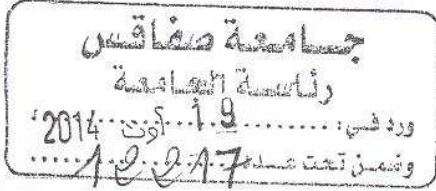 جامعة صفاقس
رئاسة الجامعة
ورد في: 19 أوت 2014
وضمن تحت عدد 12217